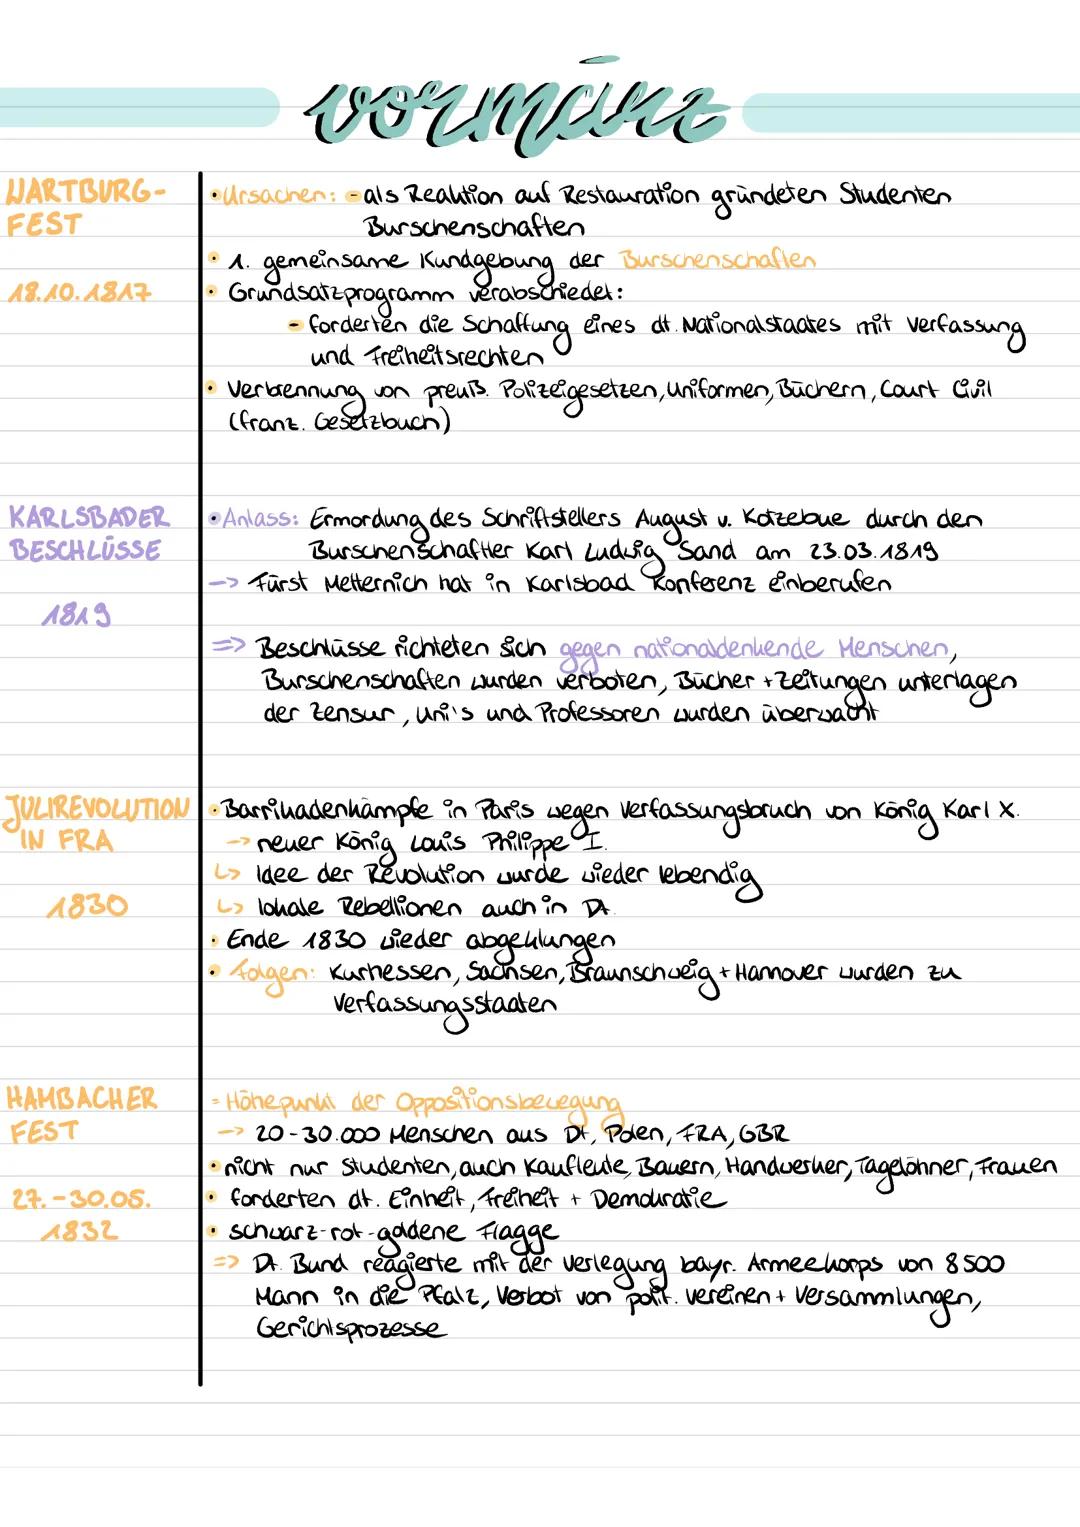 vormärz
WARTBURG-
FEST
18.10.1817
• Ursachen: - als Reaktion auf Restauration gründeten Studenten
Burschenschaften
• 1. gemeinsame Kundgebung der Burschenschaften
• Grundsatzprogramm verabschiedet:
- forderten die Schaffung eines dt. Nationalstaates mit Verfassung
und Freiheitsrechten
• Verbrennung von preuß. Polizeigesetzen, Uniformen, Büchern, Court Civil
(franz. Gesetzbuch)
KARLSBADER
BESCHLÜSSE
1819
• Anlass: Ermordung des Schriftstellers August v. Kotzebue durch den
Burschenschaftler Karl Ludwig Sand am 23.03.1819
-> Fürst Metternich hat in Karlsbad Konferenz einberufen
=> Beschlüsse richteten sich gegen nationaldenkende Menschen,
Burschenschaften wurden verboten, Bücher + Zeitungen unterlagen
der Zensur, Uni's und Professoren wurden überwacht
JULIREVOLUTION
IN FRA
1830
• Barrikadenkämpfe in Paris wegen Verfassungsbruch von König Karl X.
-> neuer König Louis Philippe I.
↳ Idee der Revolution wurde wieder lebendig
↳ lokale Rebellionen auch in Dt.
• Ende 1830 wieder abgeklungen
• Folgen: Kurhessen, Sachsen, Braunschweig + Hannover wurden zu
Verfassungsstaaten
HAMBACHER
FEST
27.-30.05.
1832
= Höhepunkt der Oppositionsbewegung
-> 20-30.000 Menschen aus Dt, Polen, FRA, GBR
• nicht nur Studenten, auch Kaufleute, Bauern, Handwerker, Tagelöhner, Frauen
• forderten dt. Einheit, Freiheit + Demokratie
• schwarz-rot-goldene Flagge
=> Dt. Bund reagierte mit der Verlegung bayr. Armeekorps von 8500
Mann in die Pfalz, Verbot von polit. Vereinen + Versammlungen,
Gerichtsprozesse